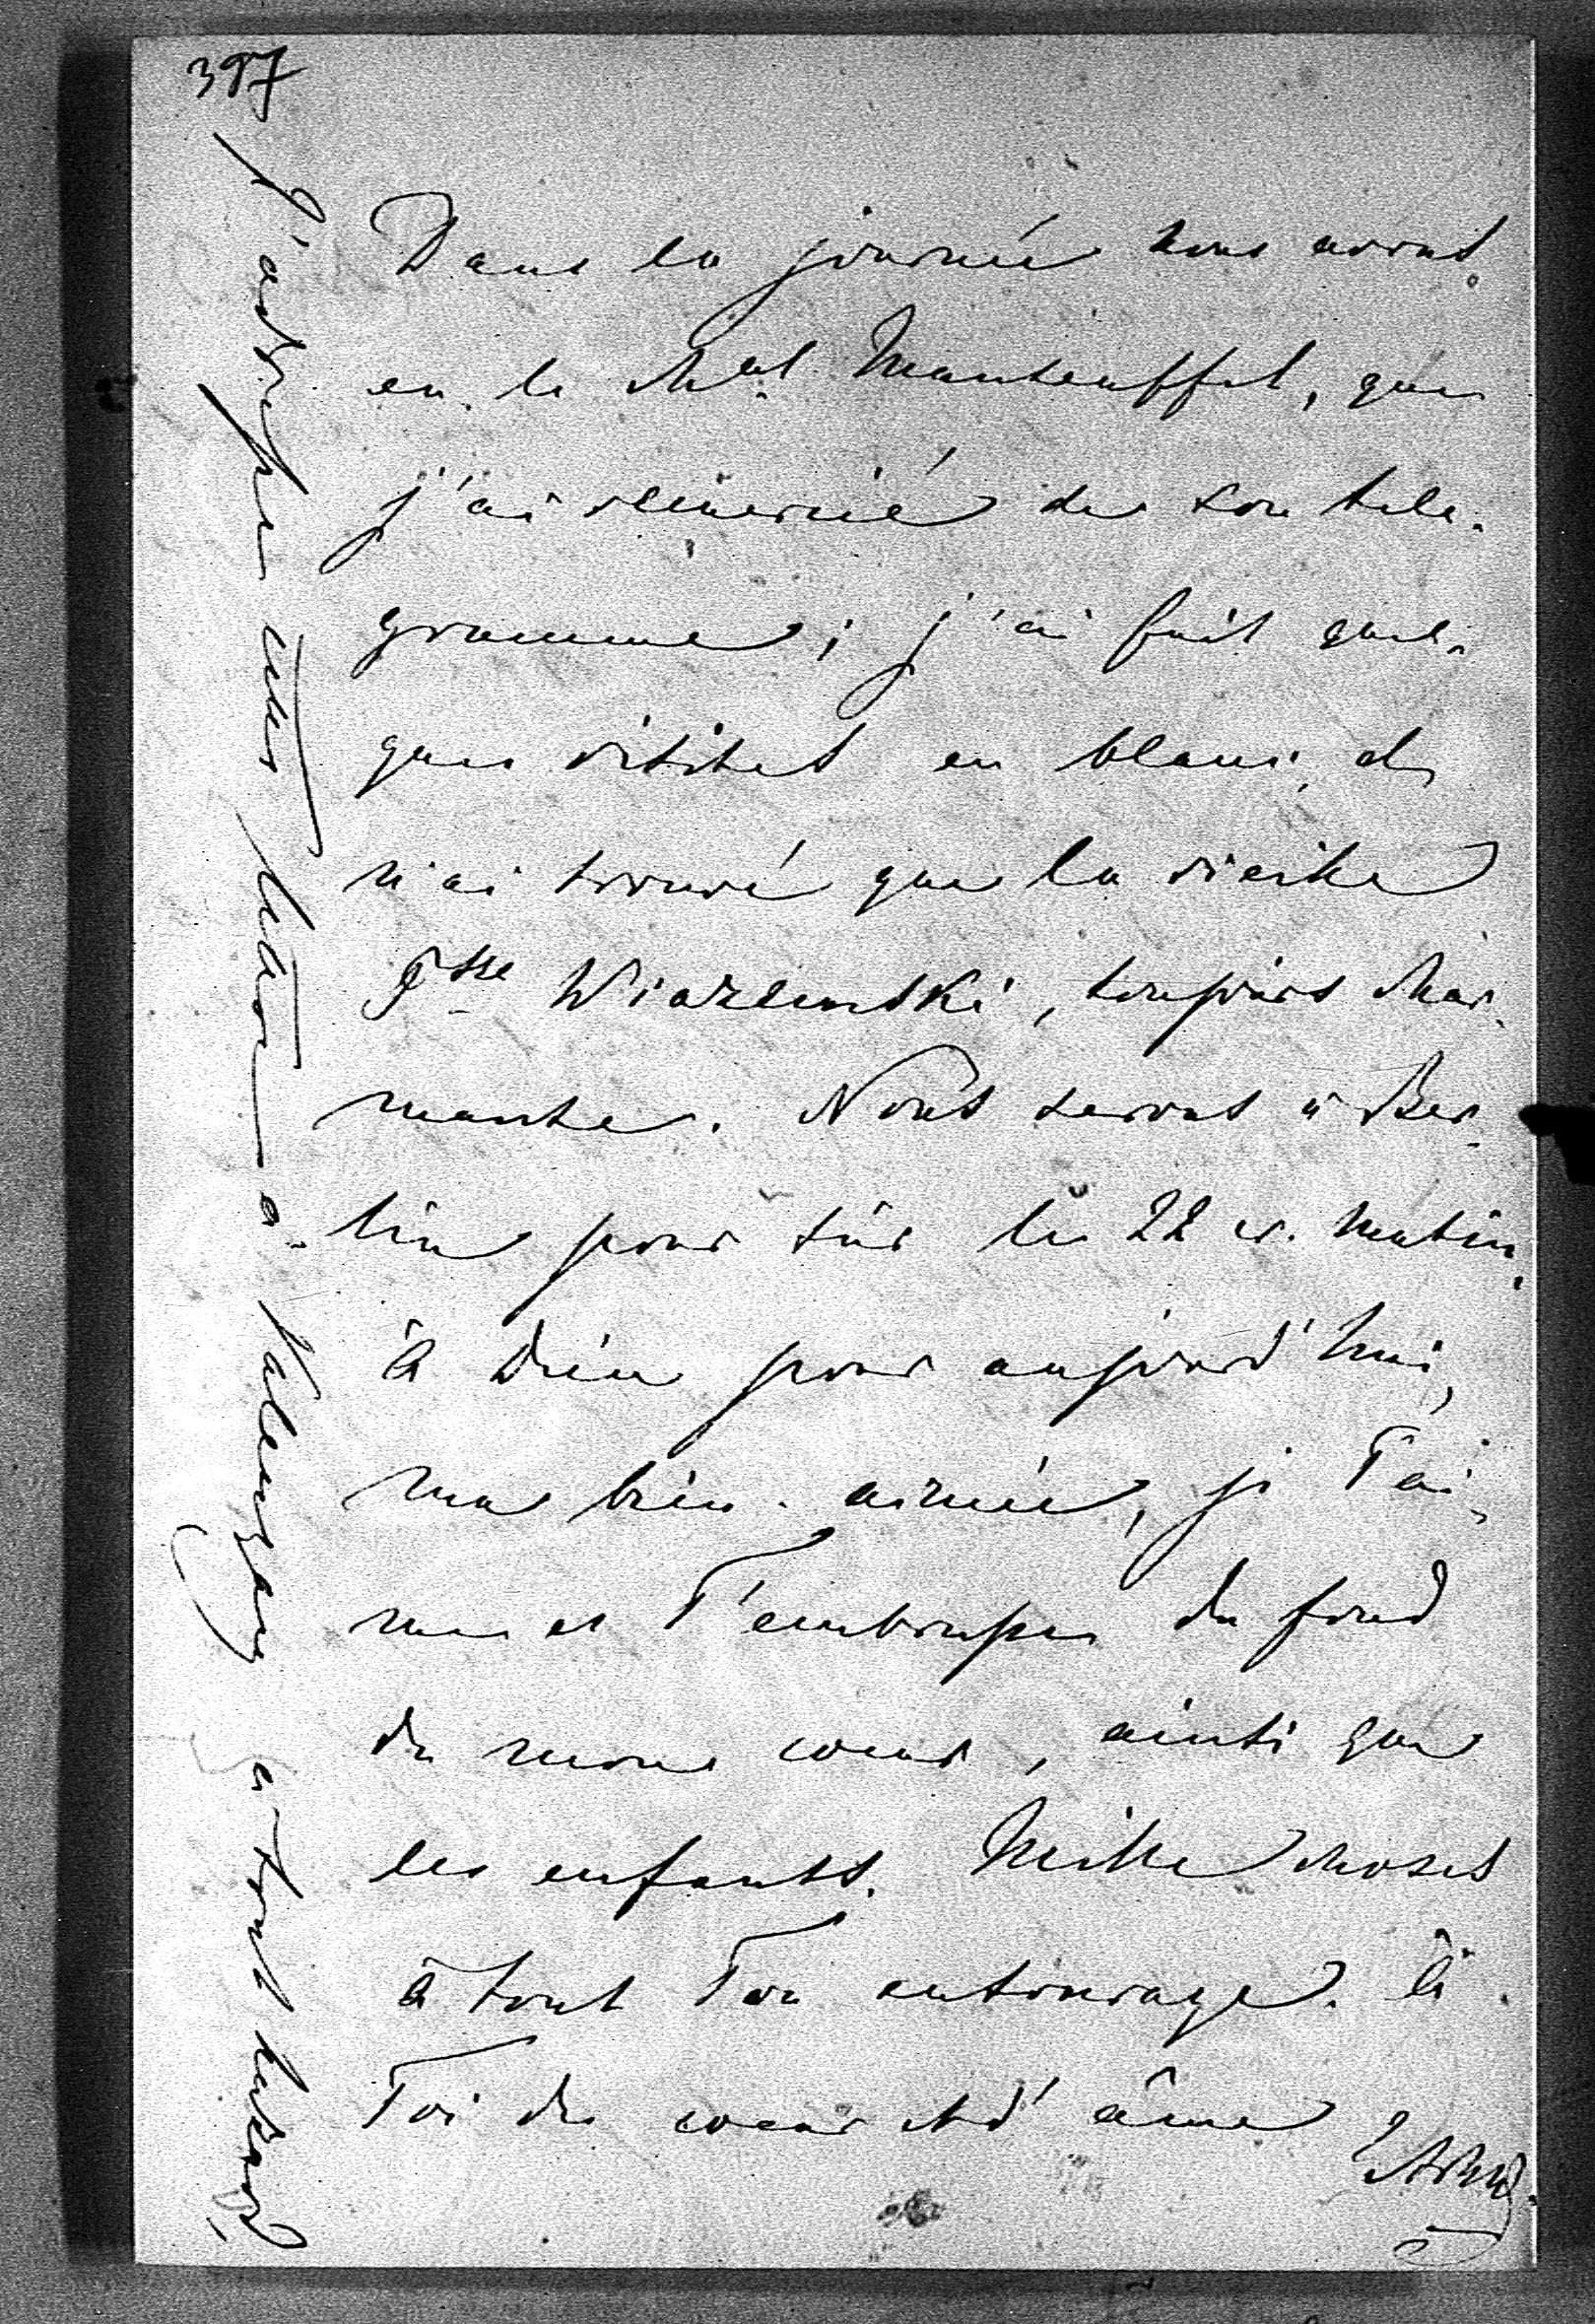 397
Dans la journée nous avons
eu le Mal Manteuffel, que
j'ai remercié de son téle-
gramme; j'ai fait quel-
ques visites en blanc, et
n'ai trouvé que la vieille
Psse Wiazemski, toujours char-
mante. Nous serons à Ber-
lin pour sûr le 22 cr. matin.
à Dieu pour aujourd'hui,
ma bien-aimée, je T'ai-
me et T'embrasse du fond
de mon coeur, ainsi que
les enfants. Mille choses
à tout Ton entourage. à
Toi de coeur et d'âme
J'adresse cette lettre à Valençay à tout hasard,